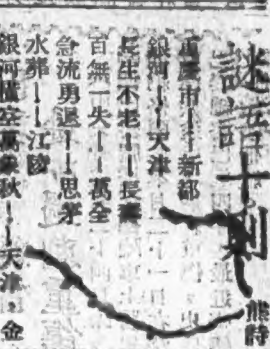 謎語十則
熊時
重慶市——新都
銀河——天津
長生不老——長壽
百無一失——萬全
急流勇退——思茅
水葬——江陵
銀河橫空萬象秋——天津，金